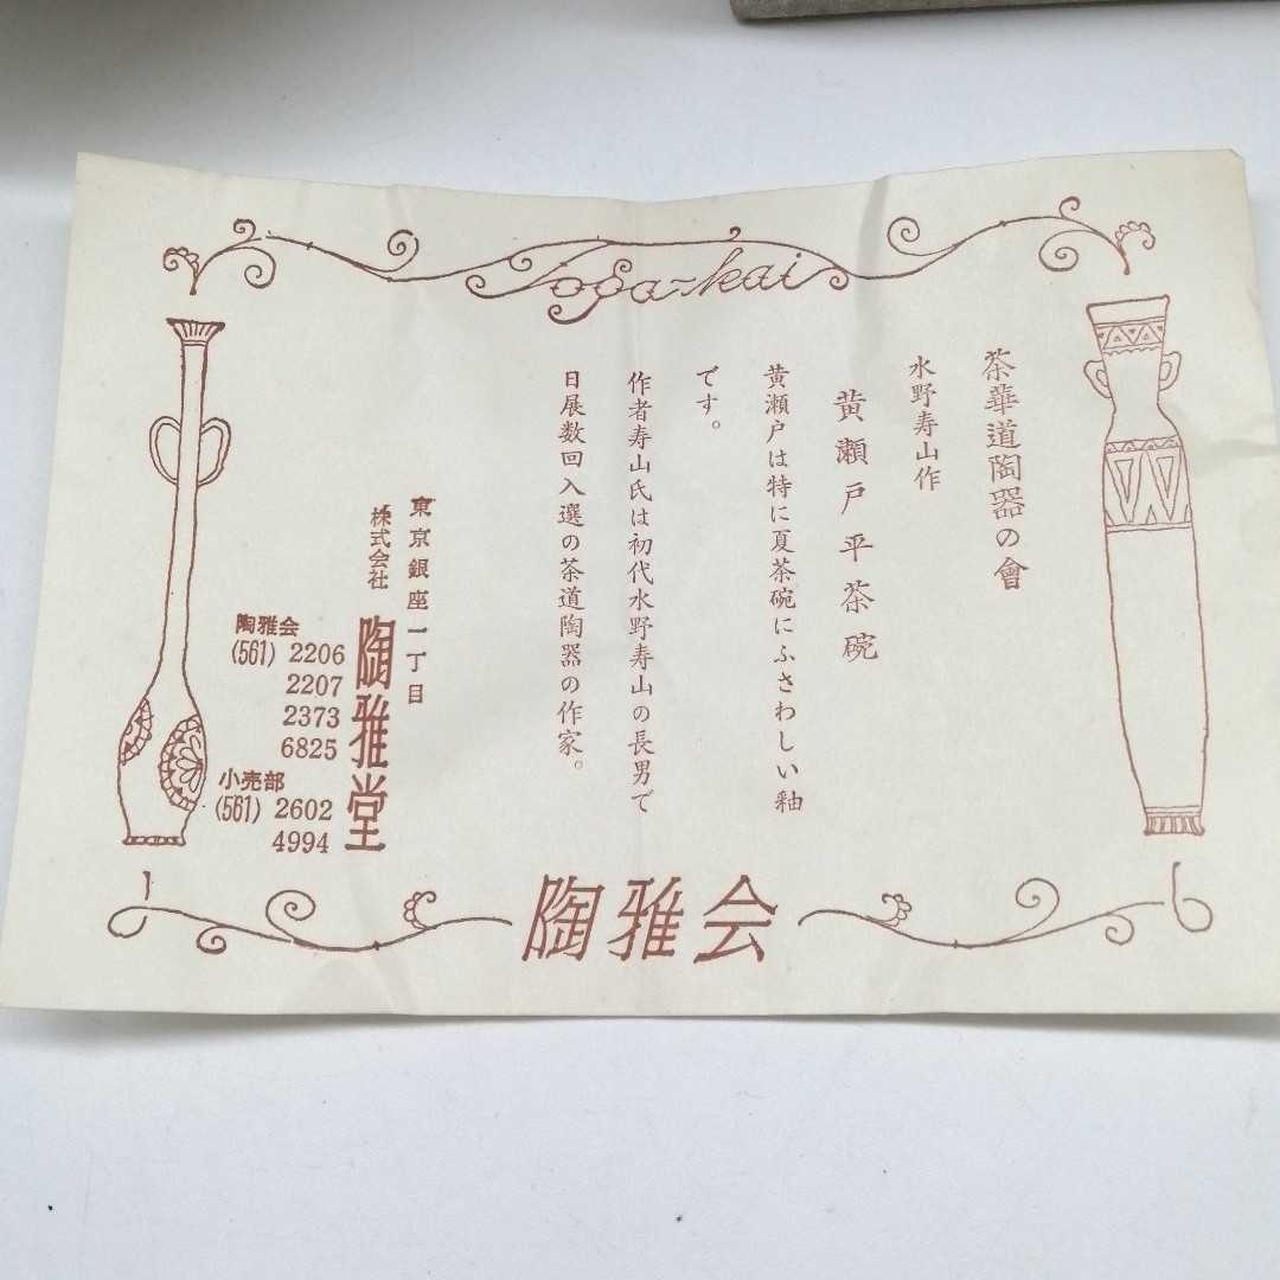 Toga-kai
茶華道陶器の會
水野寿山作
黄瀬戸平茶碗
黄瀬戸は特に夏茶碗にふさわしい釉
です。
作者寿山氏は初代水野寿山の長男で
日展数回入選の茶道陶器の作家。
東京銀座一丁目
株式会社 陶雅堂
陶雅会
(561) 2206
2207
2373
6825
小売部
(561) 2602
4994
陶雅会